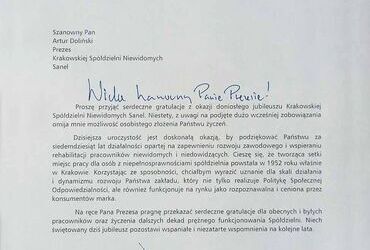 Szanowny Pan
Artur Doliński
Prezes
Krakowskiej Spółdzielni Niewidomych
Sanel
Wielce Szanowny Panie Prezesie!
Proszę przyjąć serdeczne gratulacje z okazji doniosłego jubileuszu Krakowskiej
Spółdzielni Niewidomych Sanel. Niestety, z uwagi na podjęte dużo wcześniej zobowiązania
omija mnie możliwość osobistego złożenia Państwu życzeń.
Dzisiejsza uroczystość jest doskonałą okazją, by podziękować Państwu za
siedemdziesiąt lat działalności opartej na zapewnieniu rozwoju zawodowego i wspieraniu
rehabilitacji pracowników niewidomych i niedowidzących. Cieszę się, że tworząca setki
miejsc pracy dla osób z niepełnosprawnościami spółdzielnia powstała w 1952 roku właśnie
w Krakowie. Korzystając ze sposobności, chciałbym wyrazić uznanie dla skali działania
i dynamizmu rozwoju Państwa zakładu, który nie tylko realizuje Politykę Społecznej
Odpowiedzialności, ale również funkcjonuje na rynku jako rozpoznawalna i ceniona przez
konsumentów marka.
Na ręce Pana Prezesa pragnę przekazać serdeczne gratulacje dla obecnych i byłych
pracowników oraz życzenia dalszych dekad prężnego funkcjonowania Spółdzielni. Niech
świętowany dziś jubileusz pozostawi wspaniałe i niezatarte wspomnienia na kolejne lata.